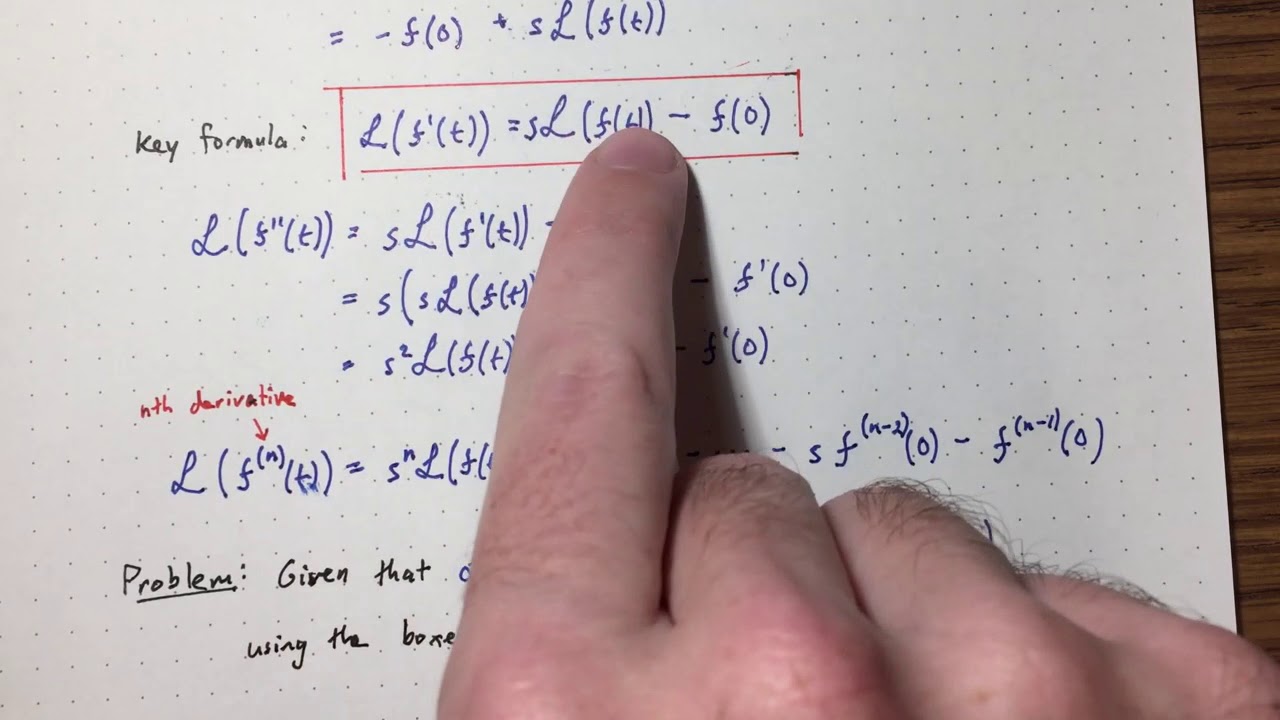 = -f(0) + sℒ(f(t))
key formula: ℒ(f'(t)) = sℒ(f(t)) - f(0)
ℒ(f''(t)) = sℒ(f'(t)) -
= s(sℒ(f(t) - f'(0)
= s²ℒ(f(t) - f'(0)
nth derivative
ℒ(f⁽ⁿ⁾(t)) = sⁿℒ(f( - ... - s f⁽ⁿ⁻²⁾(0) - f⁽ⁿ⁻¹⁾(0)
Problem: Given that
using the